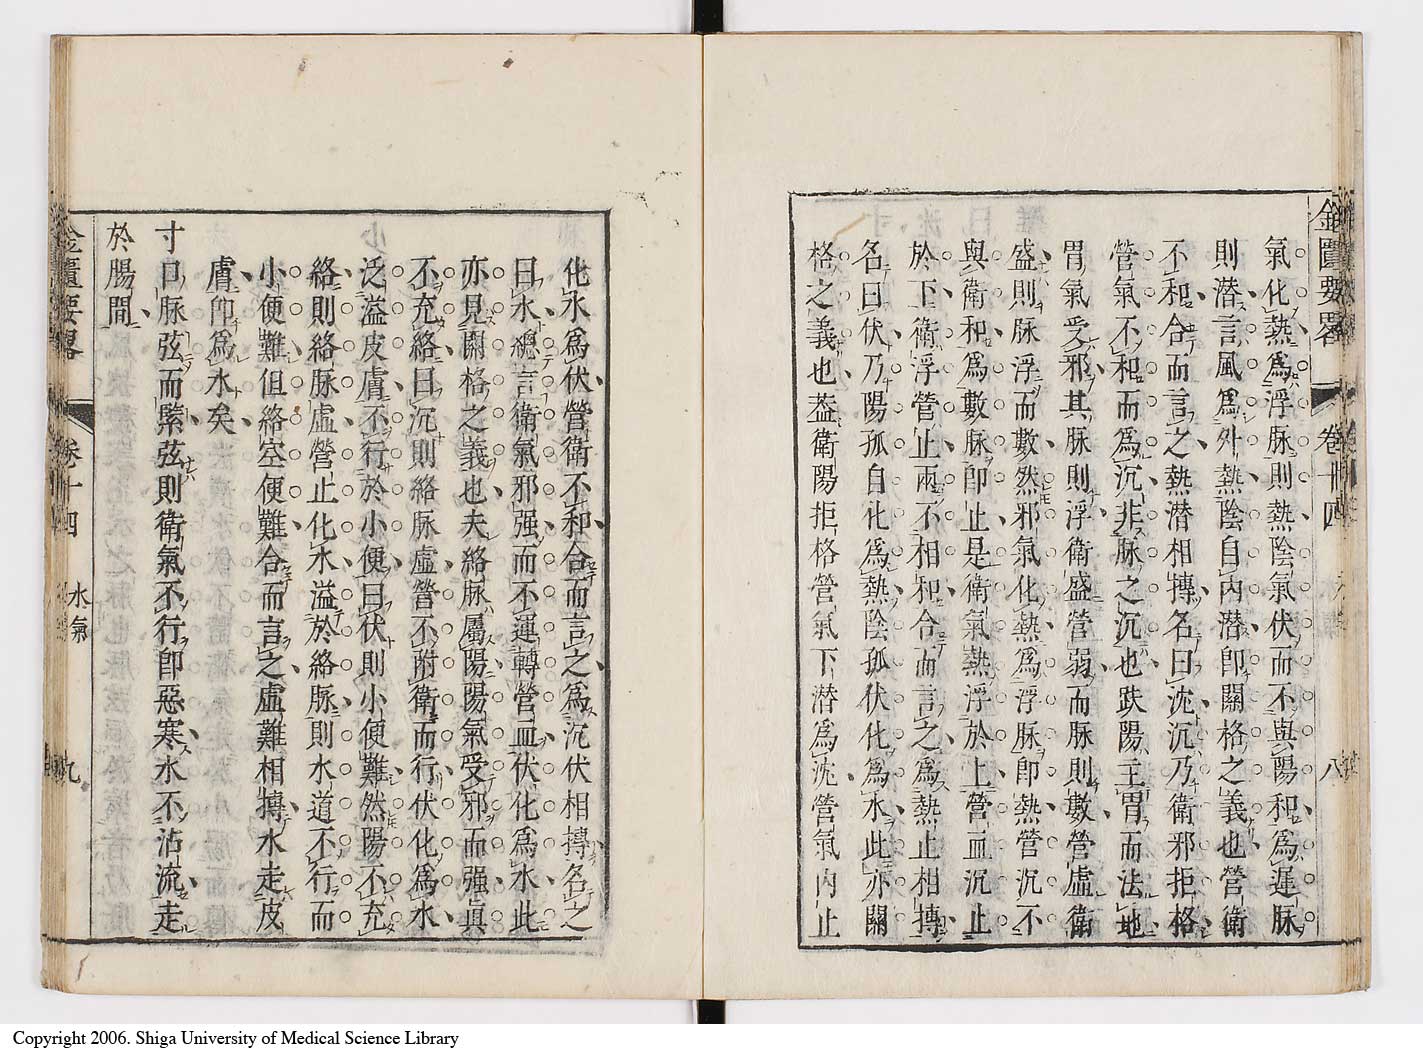 金匱要畧 卷十四 八
氣化熱爲浮脉則熱陰氣伏而不與陽和爲遲脉
則潜言風爲外熱陰自內潜卽關格之義也營衛
不和合而言之熱潜相摶名曰沈沉乃衛邪拒格
營氣不和而爲沉非脉之沉也趺陽主胃而法地
胃氣受邪其脉則浮衛盛營弱而脉則數營虛衛
盛則脉浮而數然邪氣化熱爲浮脉卽熱管沉不
與衛和爲數脉卽止是衛氣熱浮於上營血沉止
於下衛浮營止兩不相和合而言之爲熱止相摶
名曰伏乃陽孤自化爲熱陰孤伏化爲水此亦關
格之義也葢衛陽拒格營氣下潜爲沈營氣內止
化水爲伏營衛不和合而言之爲沉伏相摶名之
曰水總言衛氣邪强而不運轉營血伏化爲水此
亦見關格之義也夫絡脉屬陽陽氣受邪而强眞
不充絡曰沉則絡脉虛營不附衛而行伏化爲水
泛溢皮膚不行於小便曰伏則小便難然陽不充
絡則絡脉虛營止化水溢於絡脉則水道不行而
小便難但絡空便難合而言之虛難相摶水走皮
膚卽爲水矣
寸口脉弦而緊弦則衛氣不行卽惡寒水不沾流走
於腸間
金匱要畧 卷十四 水氣 九
Copyright 2006. Shiga University of Medical Science Library